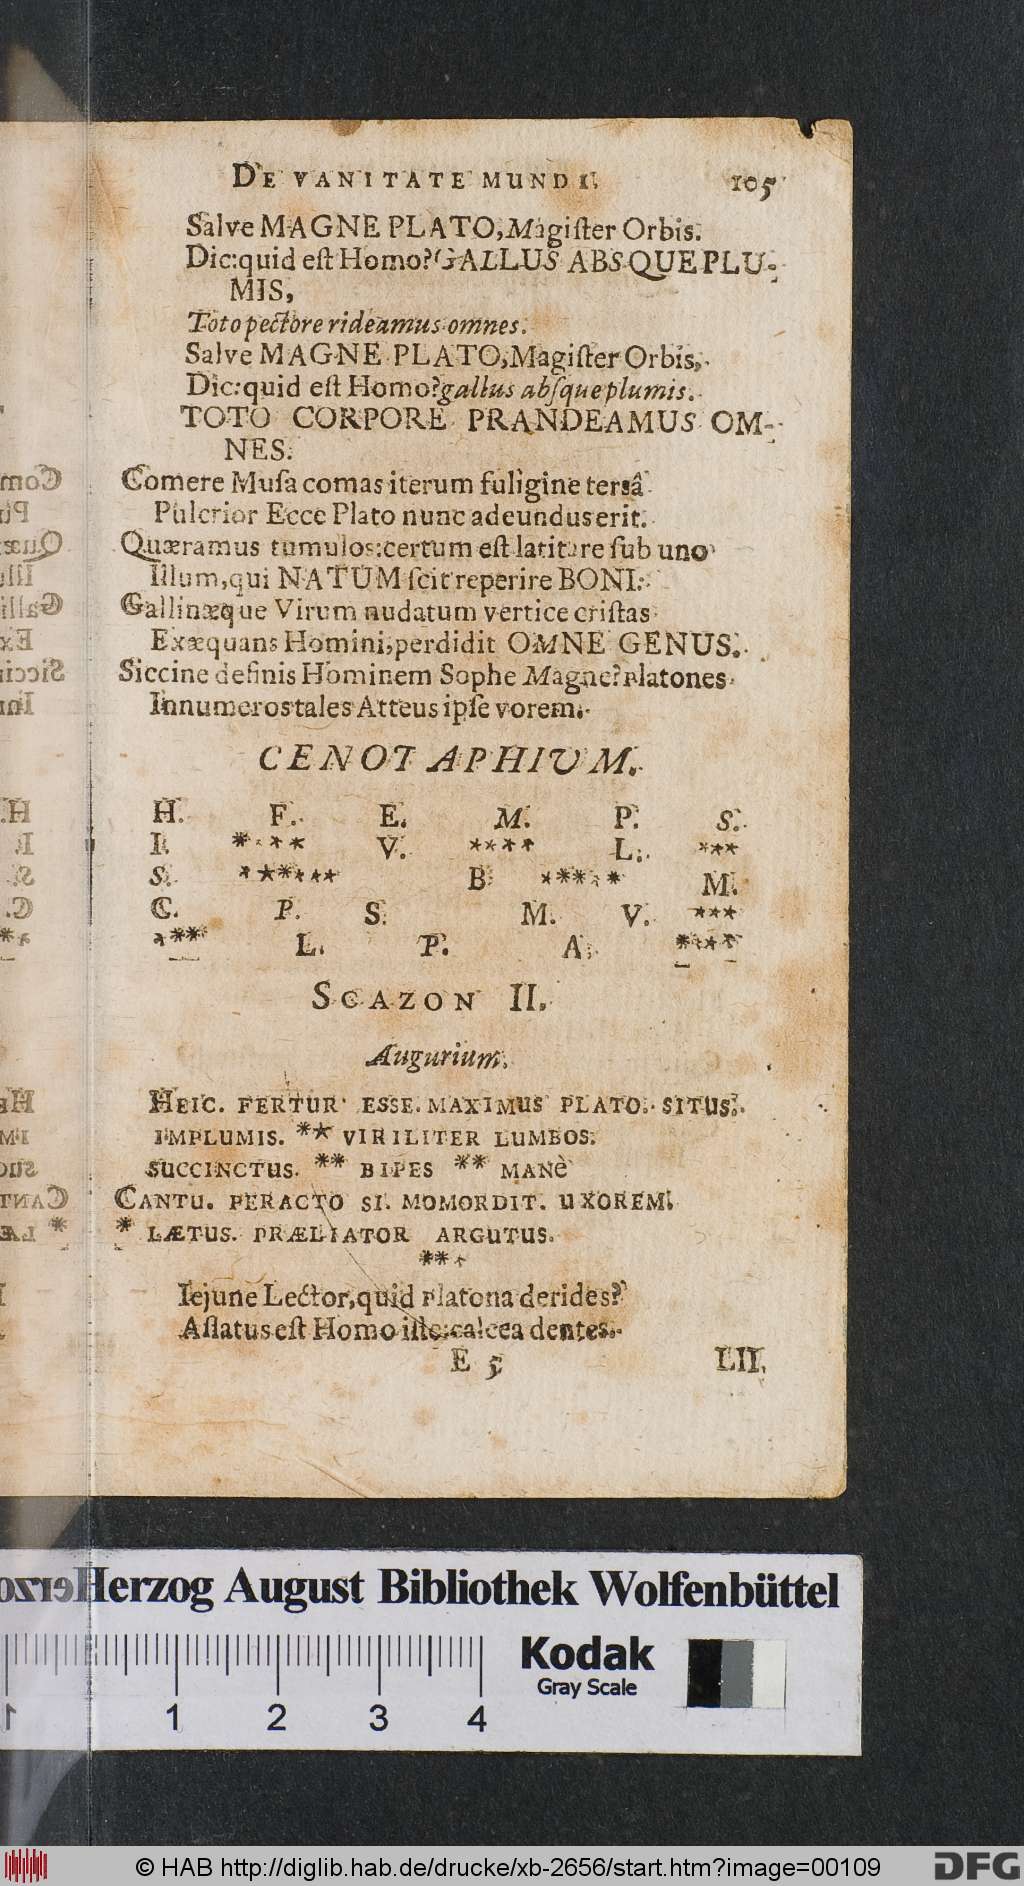 DE VANITATE MUNDI. 105
Salve MAGNE PLATO, Magiſter Orbis.
Dic: quid eſt Homo? GALLUS ABSQUE PLU-
MIS,
Toto pectore rideamus omnes.
Salve MAGNE PLATO, Magiſter Orbis,
Dic: quid eſt Homo? gallus abſque plumis.
TOTO CORPORE PRANDEAMUS OM-
NES.
Comere Muſa comas iterum fuligine tersâ
Pulcrior Ecce Plato nunc adeundus erit.
Quæramus tumulos: certum eſt latitare ſub uno
Illum, qui NATUM ſcit reperire BONI:
Gallinæque Virum nudatum vertice criſtas
Exæquans Homini, perdidit OMNE GENUS.
Siccine definis Hominem Sophe Magne? Platones
Innumeros tales Atteus ipſe vorem.
CENOTAPHIUM.
H. F. E. M. P. S.
I. **** V. **** L. ***
S. ****** B ****** M.
C. P. S. M. V. ***
*** L. P. A. ****
SCAZON II.
Augurium.
HEIC. FERTUR ESSE. MAXIMUS PLATO. SITUS.
IMPLUMIS. ** VIRILITER LUMBOS.
SUCCINCTUS. ** BIPES ** MANÈ
CANTU. PERACTO SI. MOMORDIT. UXOREM.
* LÆTUS. PRÆLIATOR ARGUTUS.
***
Iejune Lector, quid Platona derides?
Aſſatus eſt Homo iſte: calcea dentes.
E 5 LII.
Herzog August Bibliothek Wolfenbüttel
Kodak
Gray Scale
1 1 2 3 4
© HAB http://diglib.hab.de/drucke/xb-2656/start.htm?image=00109
DFG